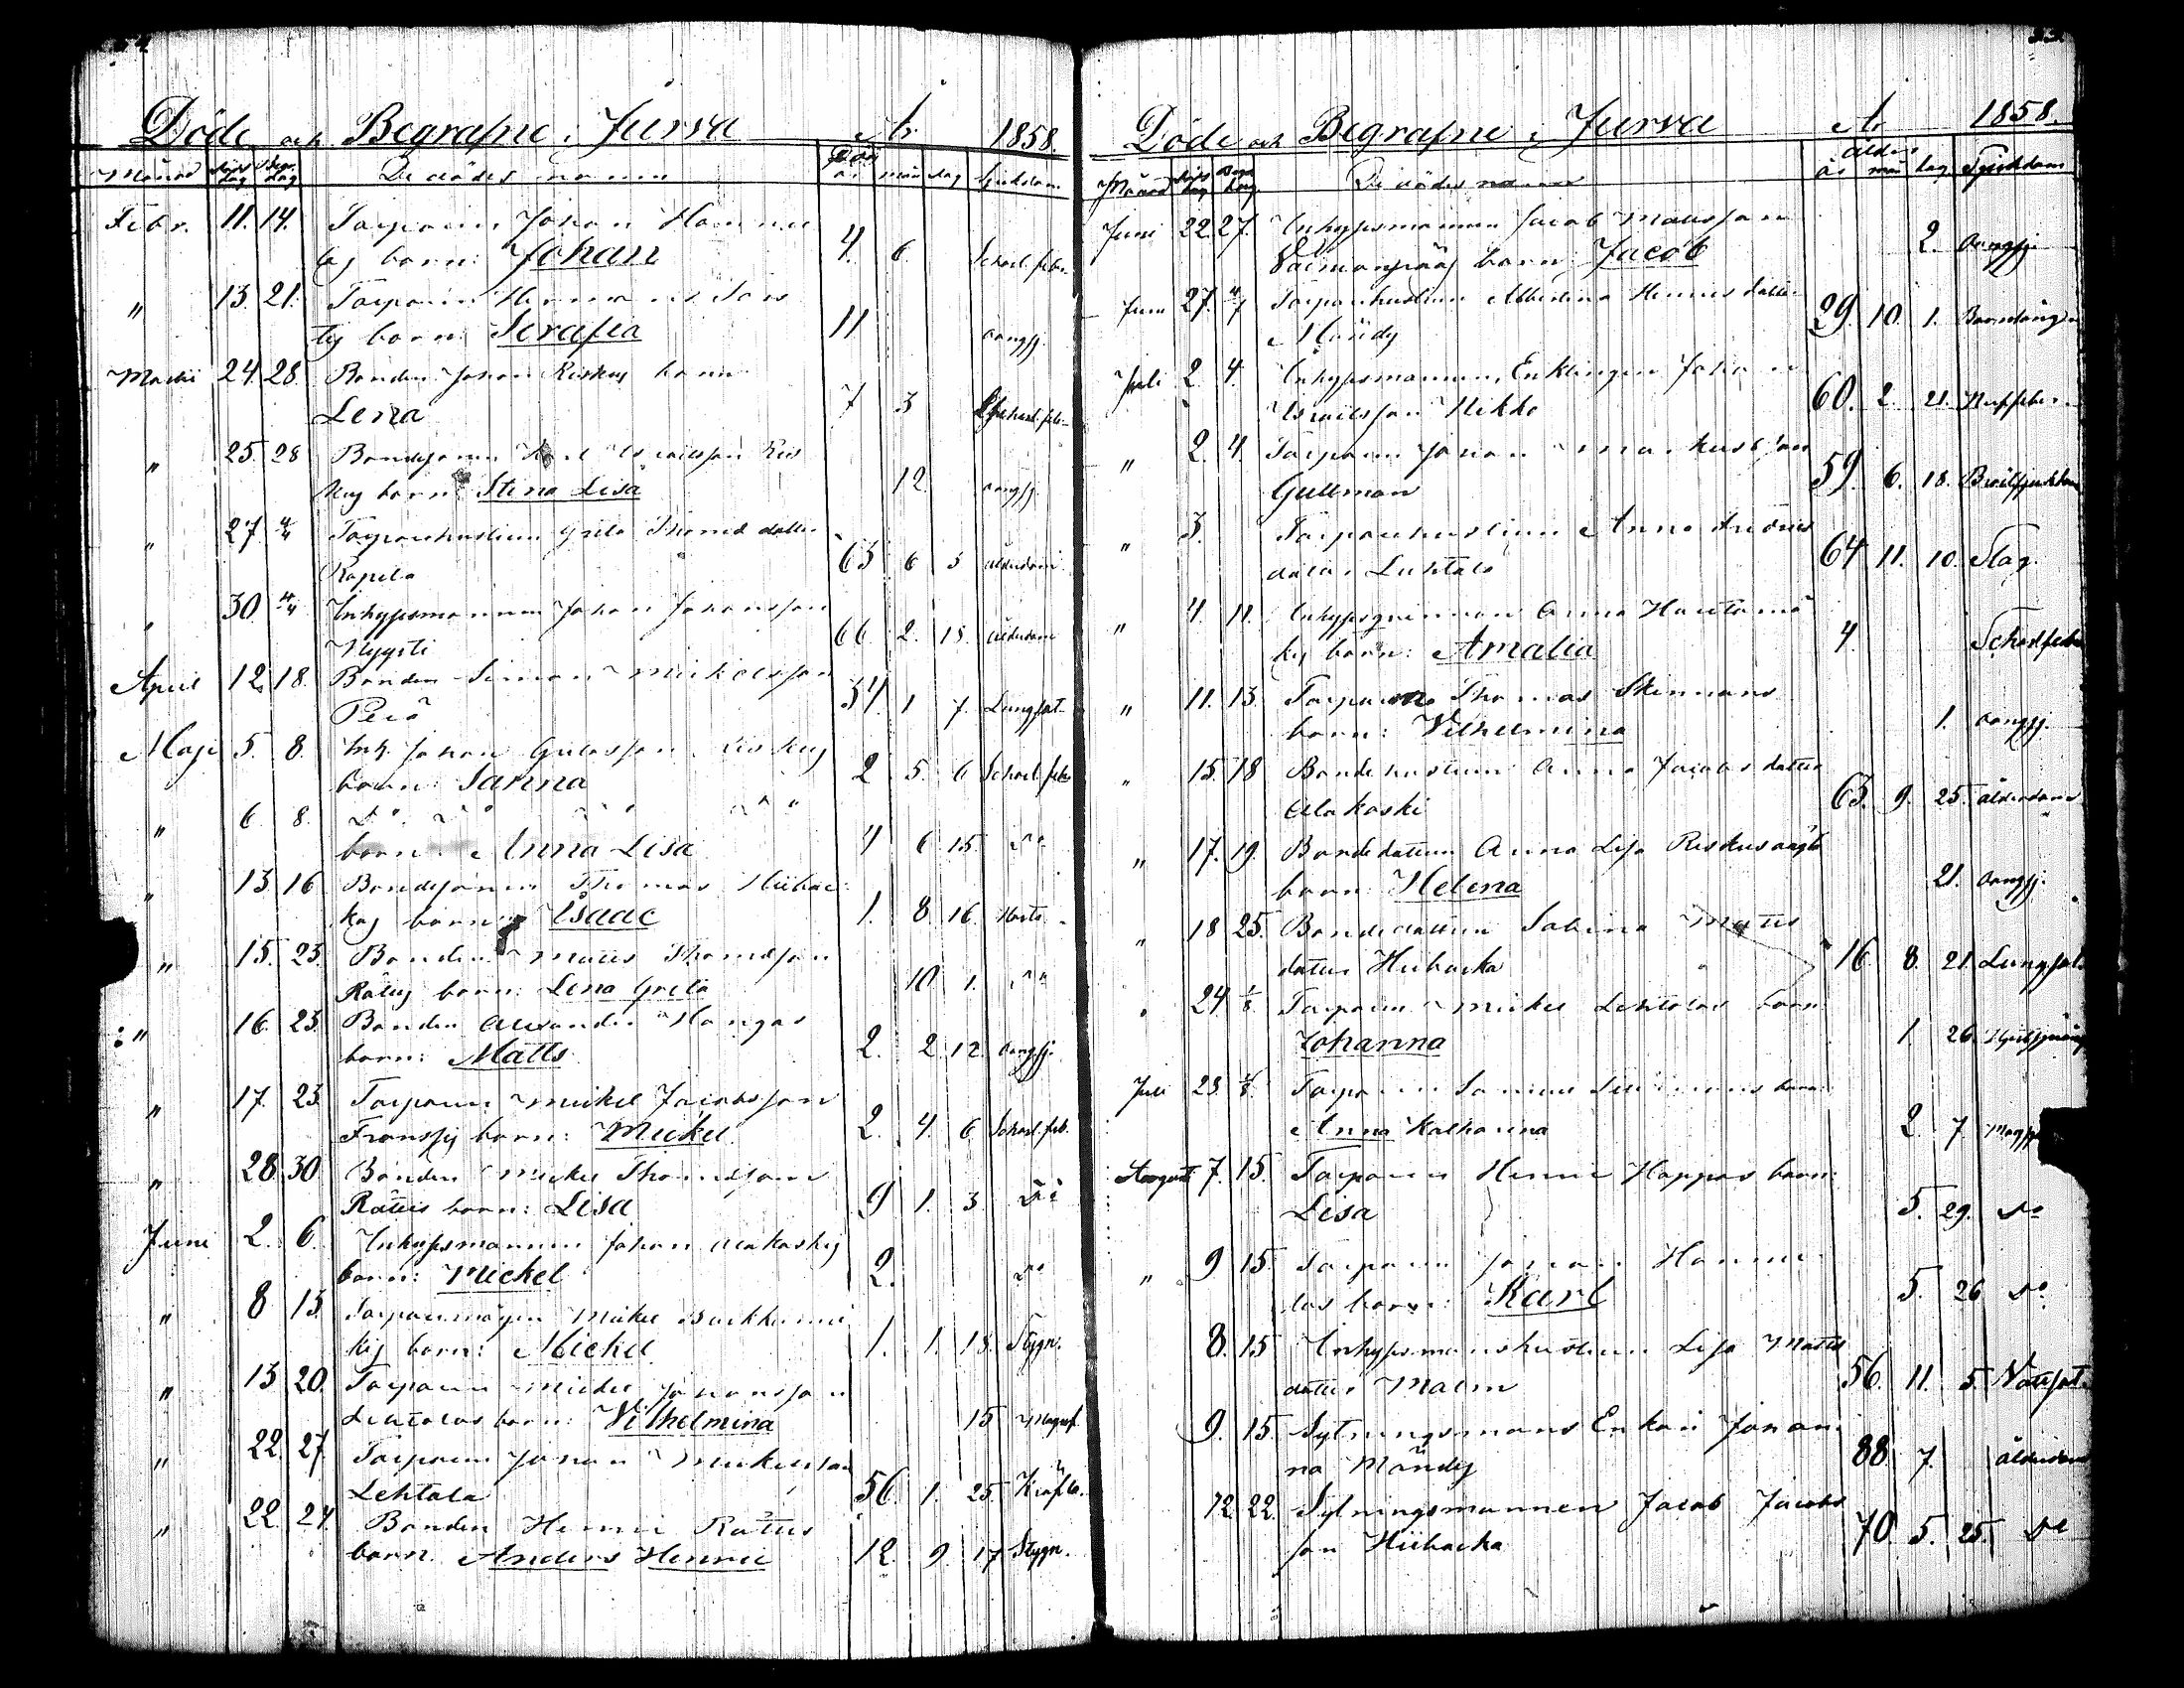 Döde och Begrafne i Jurva År 1858.
Månad Döds dag Begr. dag De dödes namn år mån dag Sjukdom
Febr. 11. 14. Torparen Johan Hannu
las barn: Johan 4. 6 Scharl. feber
" 13. 21. Torparen
barn: Serafia 11 oangfj.
Martii 24. 28. Bonden Johan Riskus barn
Lena 7 3 Scharl. feb.
" 25. 28 Bondesonen Israelsson Ris
kus barn: Stina Lisa 12. oangfj.
" 27. 4/4 Torparehustrun Greta Thomæ dotter
Rapila 63 6 5 ålderdom
" 30 4/4 Inhysesmannen Johan Johansson
Nygsti 66. 2. 15. ålderdom
April 12. 18. Bonden Simon Mickelsson
Peiä 34. 1 7. Lungsot
Maji 5. 8. Inh. Johan Riskus
barn: Sanna 2 5. 6 Scharl. feb.
" 6. 8. Do Do
barn: Anna Lisa 4 6 15. Do
" 13 16 Bondesonen Thomas Hiiba
kas barn: Isaac 1. 8. 16. Hosta
" 15. 23. Bonden Matts Thomasson
Rätys barn: Lena Greta 10 1. Do
" 16. 23. Bonden Alexander Hangas
barn: Matts 2. 2. 12. oangfj.
" 17. 23 Torparen Mickel Jacobsson
Franssis barn: Mickel 2. 4. 6 Scharl. feb.
" 28. 30 Bonden Mickel Thomasson
Rätus barn: Lisa 9 1. 3. Do
Juni 2. 6. Inhysesmannen Johan Alakoskis
barn: Mickel 2. Do
" 8 13. Torparemågen Mickel
kis barn: Mickel 1. 1. 18. Stygn.
" 13 20. Torparen Mickel Johansson
Lehtolas barn: Vilhelmina 15 Magsj.
" 22. 27. Torparen Johan Mickelsson
Lehtola 56. 1. 25. Kräfta.
" 22. 27. Bonden Henric Rätus
barn. Anders Henric 12. 9. 17 Stygn.
Döde och Begrafne i Jurva År 1858.
Månad Döds dag Begr. dag De dödes namn Ålder år mån dag Sjukdom
Juni 22. 27. Inhysesmannen Jacob Mattsson
barn: Jacob 2. oangfj.
Juni 27. 4/7 Torparehustrun Albertina Henrics dotter
Mändy 29. 10. 1. Barnsäng
Juli 2 4. Inhysesmannen, Enklingen Johan
Israelsson Hikko 60. 2. 21.
" 2. 4. Torparen Johan Markusson
Gullman 59. 6. 18. Bröstsjukdom
" 3. Torparehustrun Anna Andres
dotter Lehtala 64 11. 10. Slag.
" 4. 11. Inhysesqvinnan Anna Hautamä
kis barn: Amalia 4. Scharl.feber
" 11. 13. Torparen Thomas Stenmans
barn: Vilhelmina 1. oangfj.
" 15. 18 Bondehustrun Anna Jacobs dotter
Alakoski 63. 9. 25. ålderdom
" 17. 19. Bondedottren Anna Lisa Riskus oägta
barn: Helena 21. oangfj.
" 18 25. Bondedottren Sabina Matts
dotter Hiibacka 16 8. 21. Lungsot.
" 24. 1/8 Torparen Mickel Lehtolas barn
Johanna 1. 26.
Juli 23. 1/8. Torparen barn:
Anna Katharina 2. 7
Augusti 7. 15. Torparen Henric Hoppos barn:
Lisa 5. 29. Do
" 9 15. Torparen Johan Hannu
las barn: Karl 5. 26 Do
8. 15 Inhysesmanshustrun Lisa Matts
dotter Malm 56. 11. 5.
9. 15. Sytningsmans Enkan Johan
na Mändy 88. 7. ålderdom
12 22. Sytningsmannen Jacob Jacobs
son Hiibacka 70. 5. 25. Do